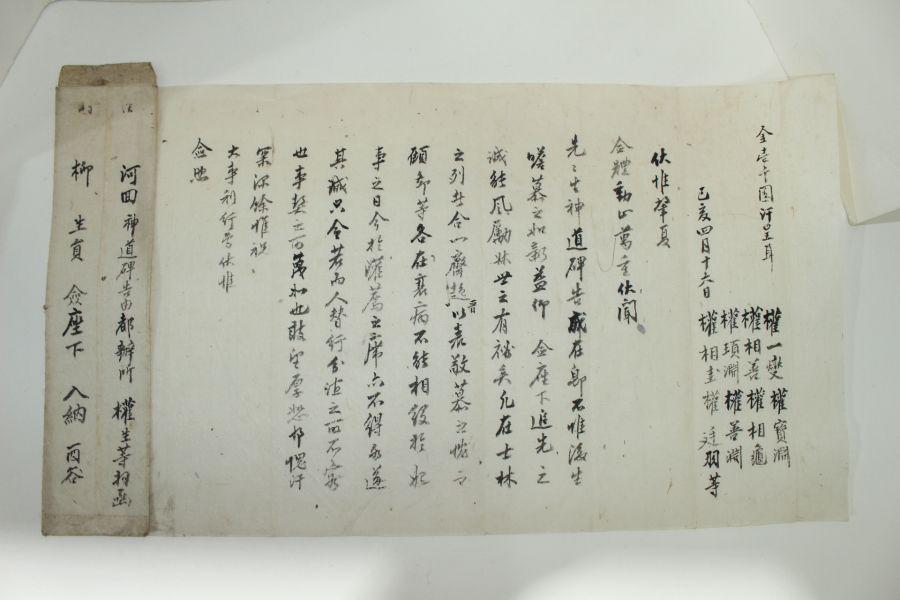 金壱十圓汗呈耳
己亥四月十六日
權一燮 權寶淵
權相善 權相龜
權頊淵 權善淵
權相圭 權廷羽等
伏惟肇夏
僉體動止萬重伏聞
先先生神道碑告成在卽不惟後生
嗟慕之如新益仰 僉座下追先之
誠能風勵林世之有裕矣凡在士林
之列者合以齊趨以表敬慕之忱而
顧鄙等各在衰病不能相發於
事之日今於灌薦之席亦不得承遂
其誠只令若而人替行分誼之所不容
也事契之所萬如也鼓望厚愧汗
深餘惟祝
大事利行當伏惟
僉照
河回 神道碑告由都辦所 權生等拜函
柳 生員 僉座下 入納 酉谷